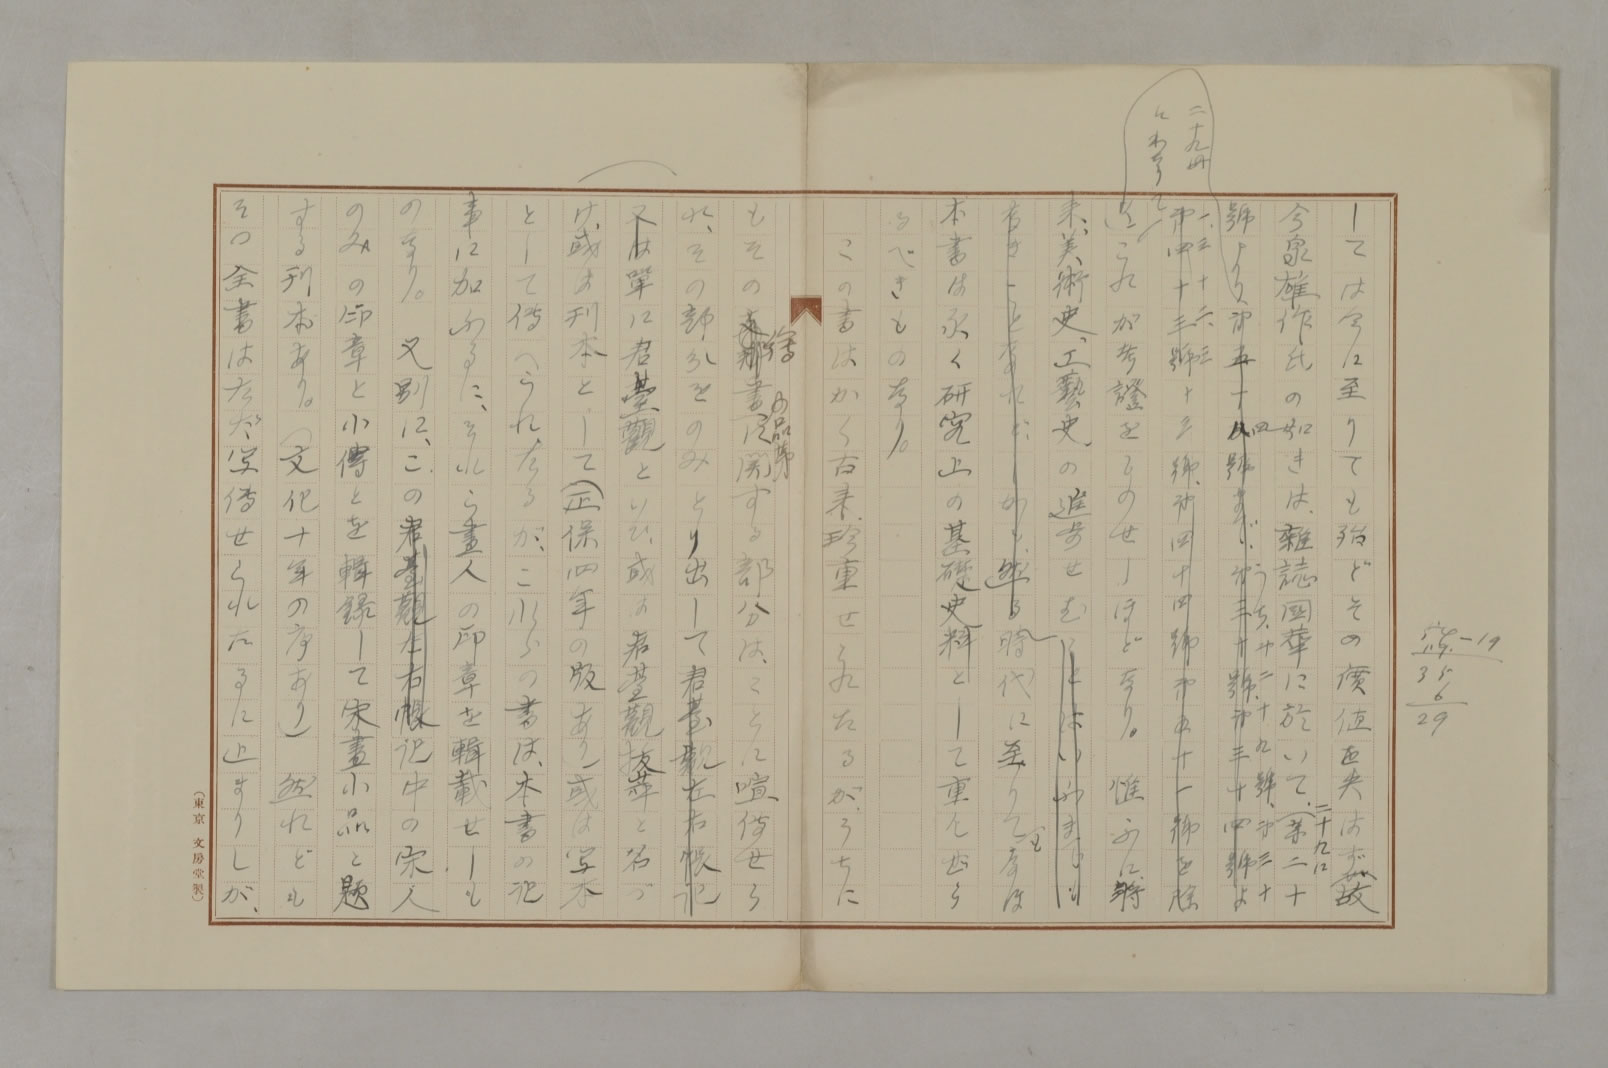 しては今に至りても殆どその價値を失はず、故
今泉雄作氏の如きは、雜誌國華に於いて、第二十
號より
十三號、第四十四號、第五十一號を除
これが考證をものせしほどなり。惟ふに將
來、美術史、工藝史の進歩せむ
時代に至りても、なほ
本書は永く研究上の基礎史料として重んぜら
るべきものなり。
この書はかく古來珍重せられたるが、うちに
もその繪畫の品第に関する部分は、ことに喧傳せら
れ、その部分をのみとり出して君臺觀左右帳記
又は單に君臺觀といひ、或は君臺觀抜萃と名づ
け、或は刊本として(正保四年の版あり)或は写本
として傳へられたるが、これらの書は、本書の記
事に加ふるに、それら畫人の印章を輯載せしも
のなり。又別に、この君臺觀左右帳記中の宋人
のみの印章と小傳とを輯録して宋畫小品と題
する刊本あり。(文化十年の序あり)然れども
その全書はただ写傳せられたるに止まりしが、
二十九冊
29
(東京 文房堂製)